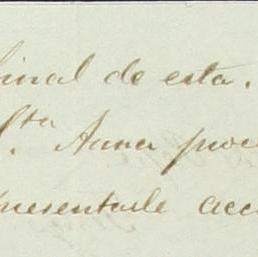 final de esta.
Sta. Anna proc
presentarle acc